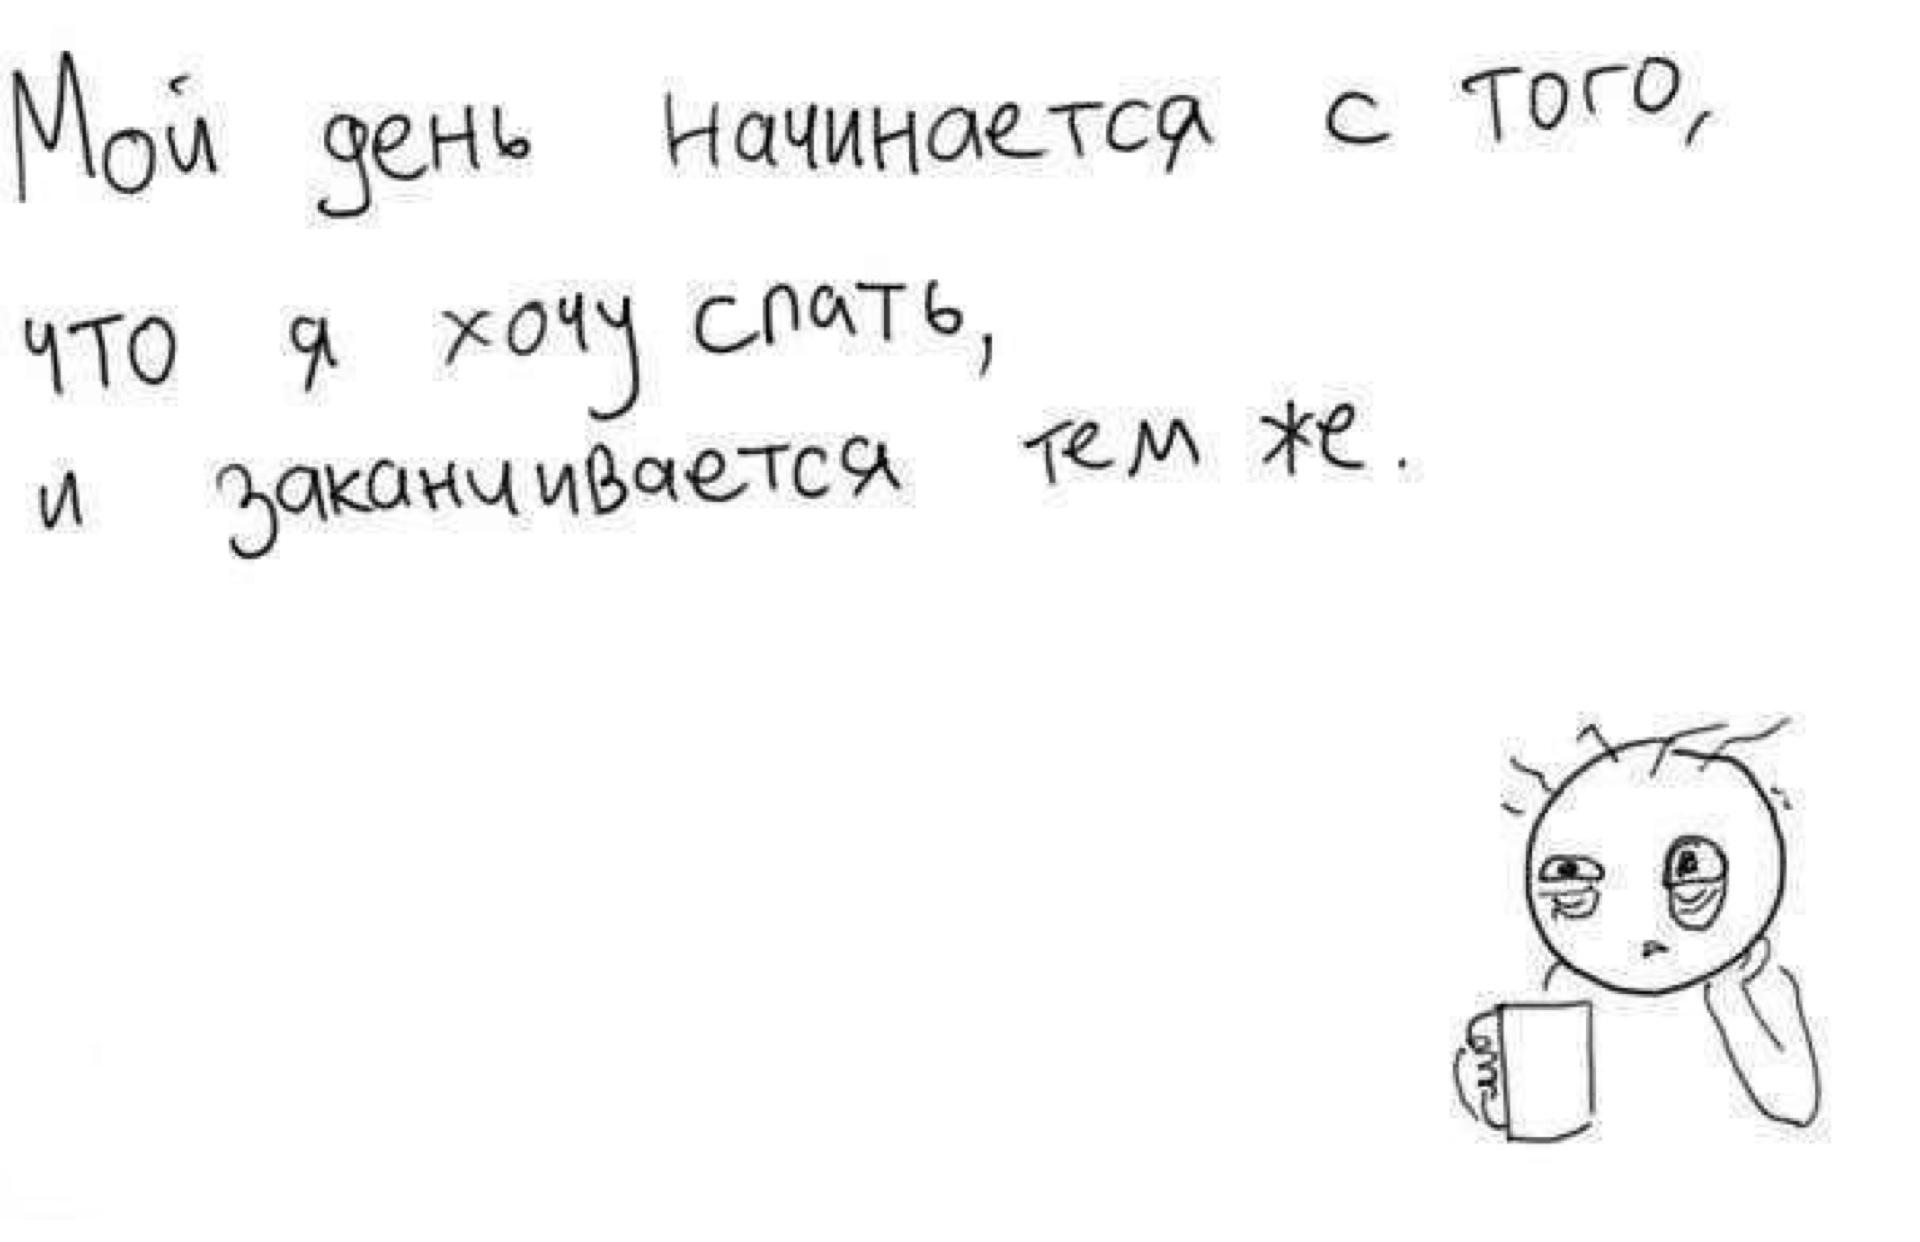 Мой день начинается с того,
что я хочу спать,
и заканчивается тем же.